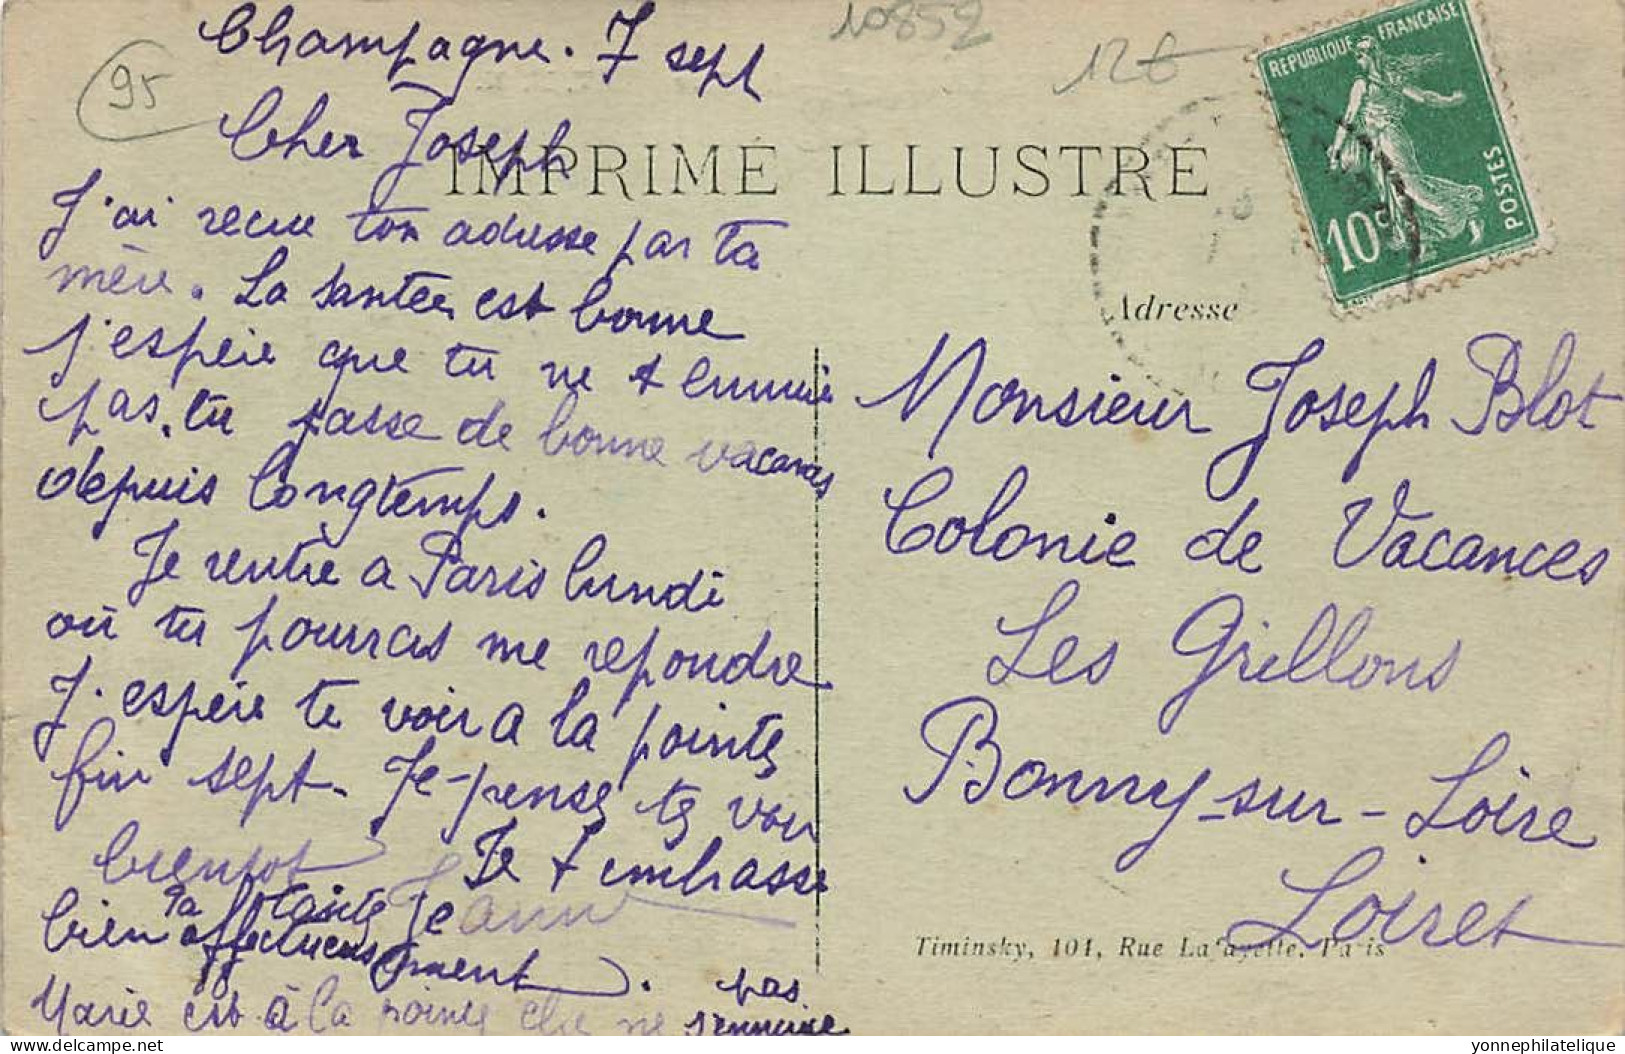 10852
12€
95
Champagne. 7 sept
Cher Joseph
J'ai recue ton adresse par ta
mère. La santée est bonne
j'espère que tu ne t'ennuie
pas. tu passe de bonne vacances
depuis longtemps.
Je rentre a Paris lundi
où tu pourras me repondre
J'espère te voir a la pointe
fin sept. Je pense te voir
bientot Je t'embrasse
bien affectueusement.
Ta tante Jeanne
Marie est à la pointe elle ne s'ennuie
pas
IMPRIMÉ ILLUSTRÉ
REPUBLIQUE FRANÇAISE
10c
POSTES
Adresse
Monsieur Joseph Blot
Colonie de Vacances
Les Grillons
Bonny-sur-Loire
Loiret
Timinsky, 101, Rue Lafayette. Paris
yonnephilatelie
delcampe.net